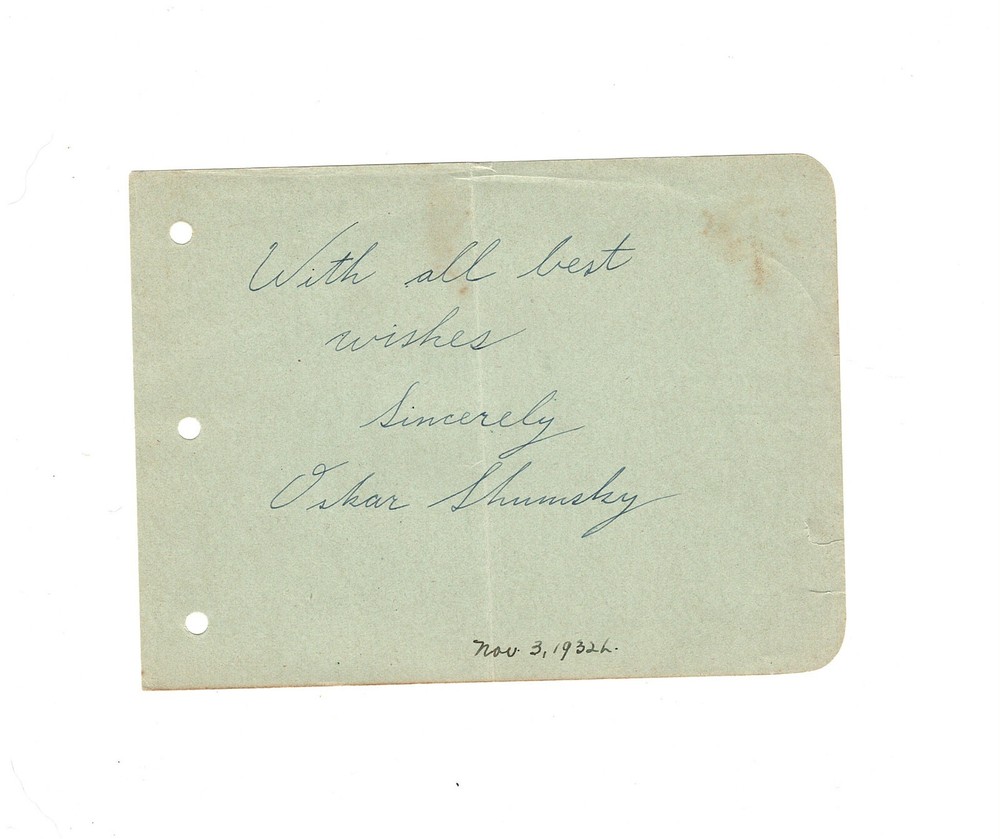 With all best
wishes
Sincerely
Oskar Shumsky
Nov. 3, 1932